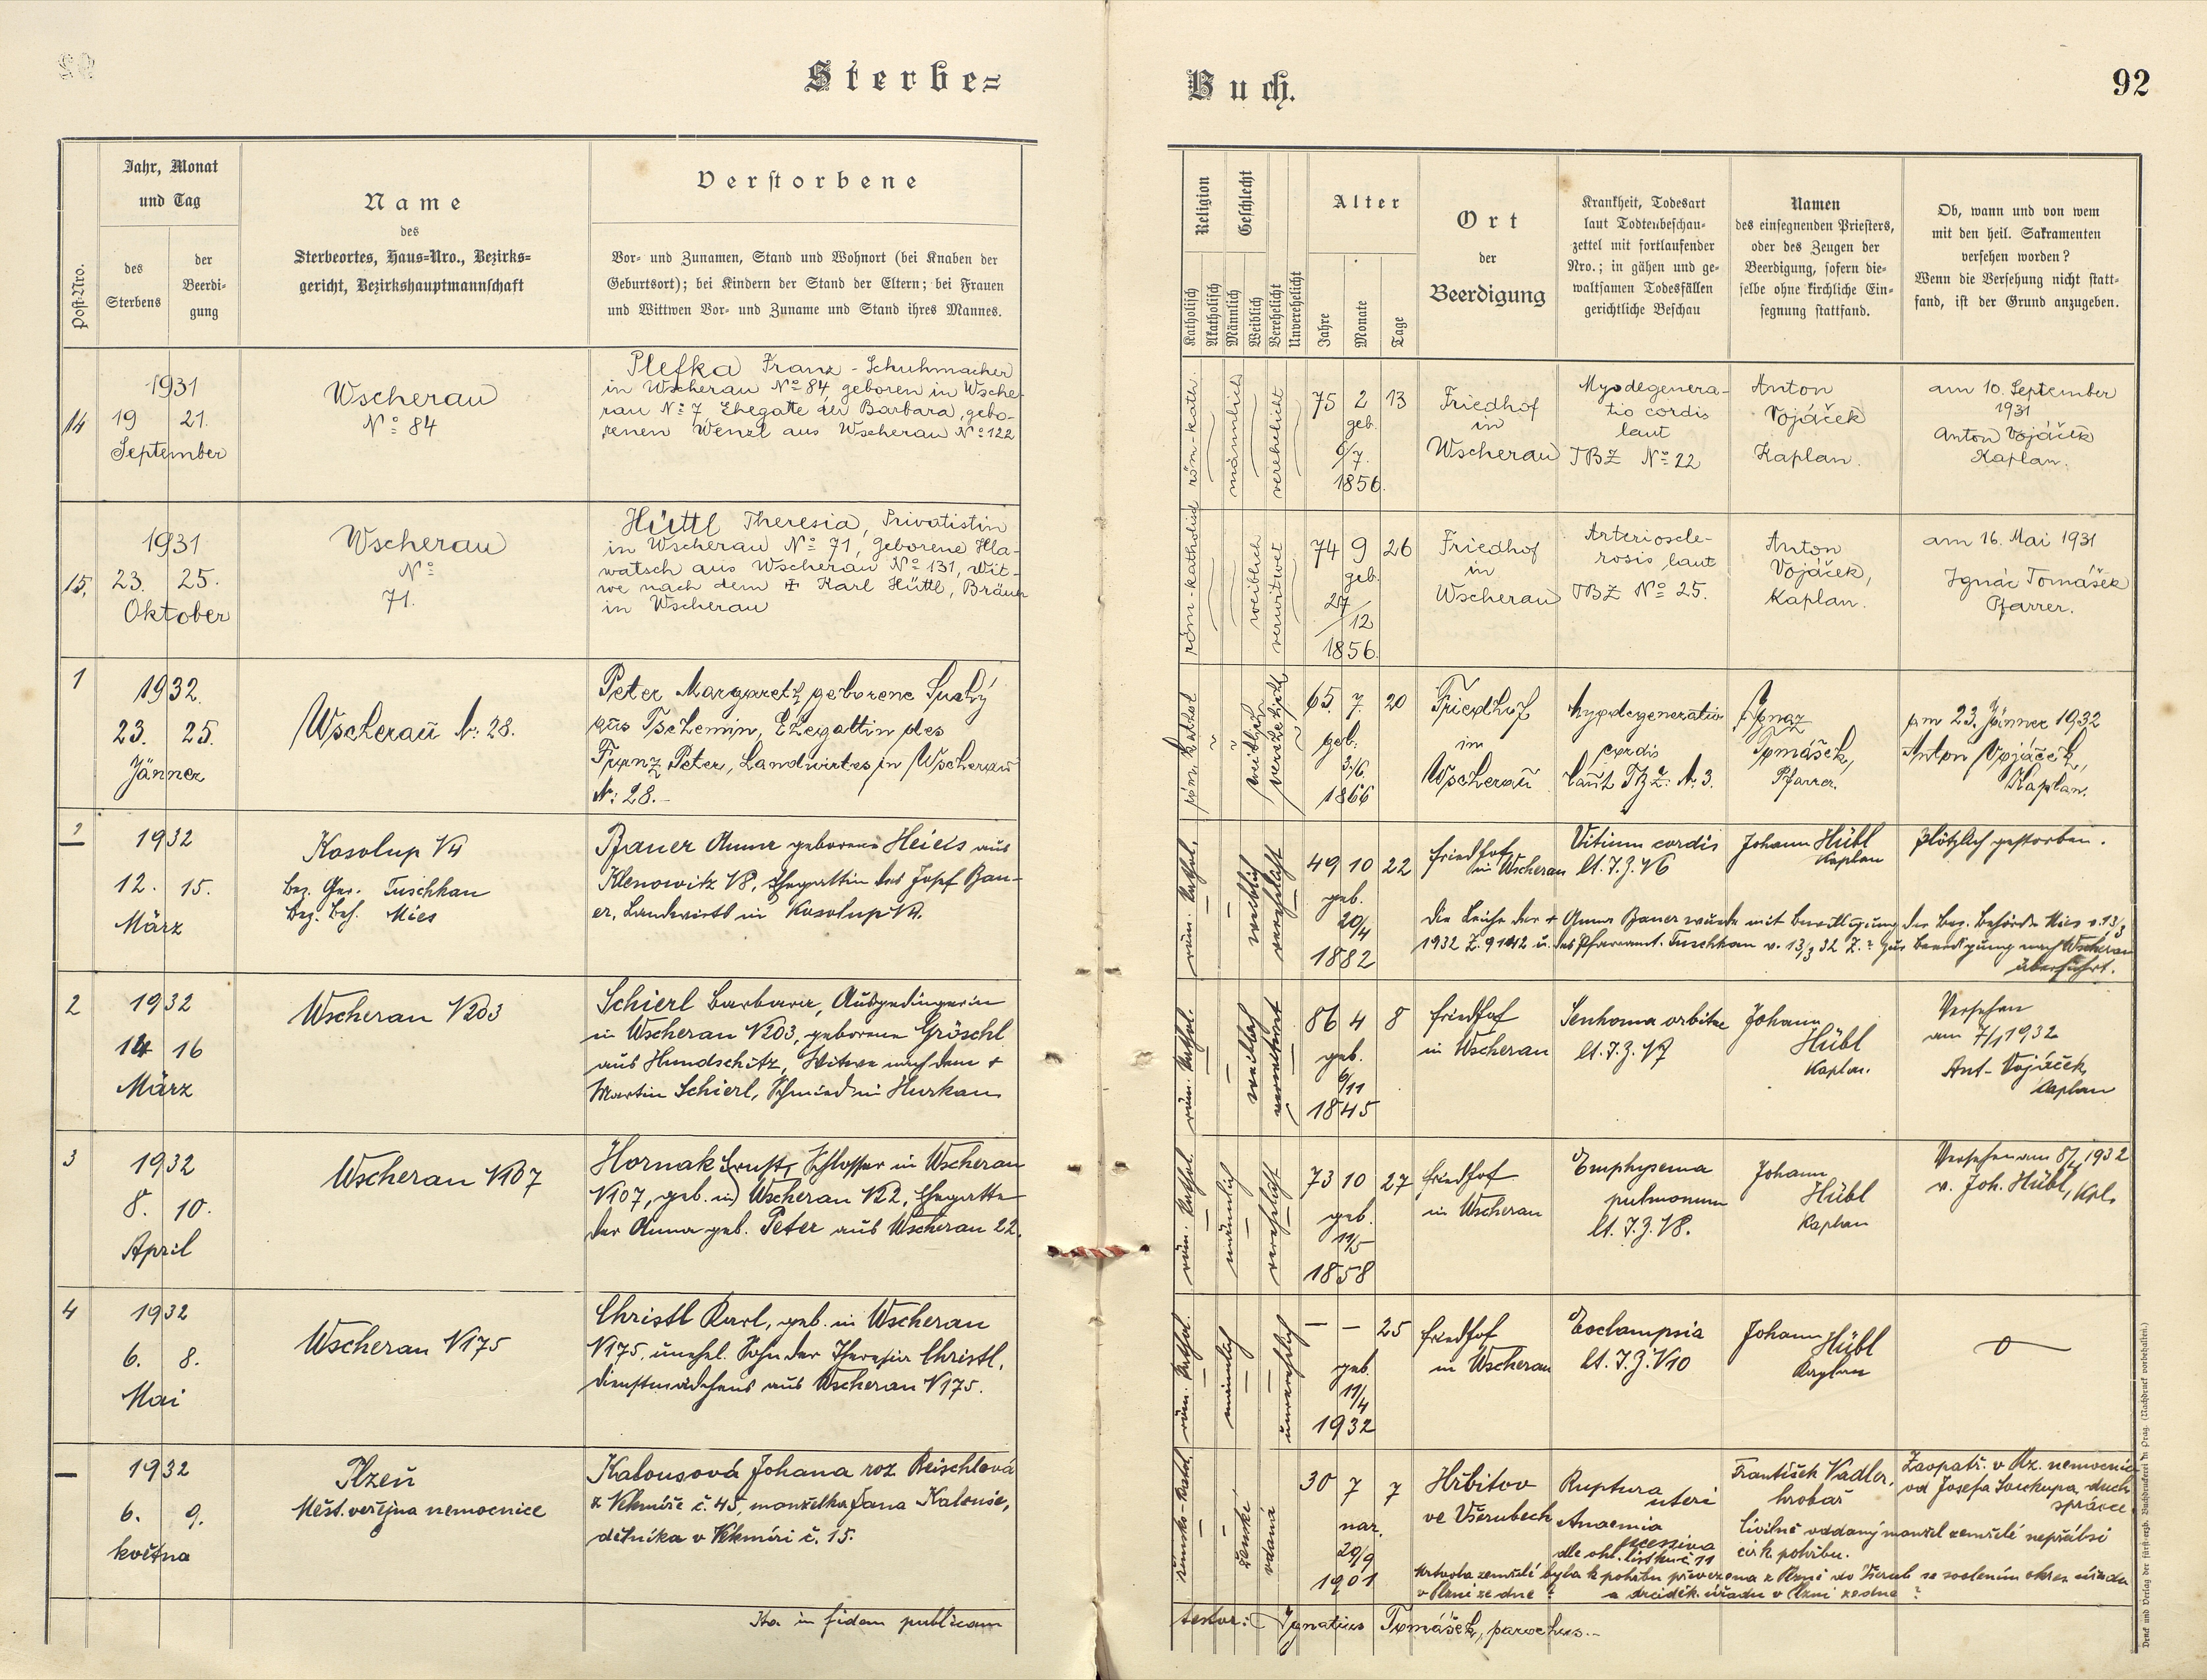 Sterbe=
Buch.
92
Post-Nro.
Jahr, Monat
und Tag
des
Sterbens
der
Beerdi-
gung
Name
des
Sterbeortes, Haus=Nro., Bezirks=
gericht, Bezirkshauptmannschaft
Verstorbene
Vor- und Zunamen, Stand und Wohnort (bei Knaben der
Geburtsort); bei Kindern der Stand der Eltern; bei Frauen
und Wittwen Vor- und Zuname und Stand ihres Mannes.
Religion
Katholisch
Akatholisch
Geschlecht
Männlich
Weiblich
Verehelicht
Unverehelicht
Alter
Jahre
Monate
Tage
Ort
der
Beerdigung
Krankheit, Todesart
laut Todtenbeschau-
zettel mit fortlaufender
Nro.; in gähen und ge-
waltsamen Todesfällen
gerichtliche Beschau
Namen
des einsegnenden Priesters,
oder des Zeugen der
Beerdigung, sofern die-
selbe ohne kirchliche Ein-
segnung stattfand.
Ob, wann und von wem
mit den heil. Sakramenten
versehen worden?
Wenn die Versehung nicht statt-
fand, ist der Grund anzugeben.
14
1931
19 21.
September
Wscherau
No 84
Plefka Franz - Schuhmacher
in Wscherau No 84, geboren in Wsche-
rau No 7 Ehegatte der Barbara, gebo-
renen Wenzl aus Wscherau No 122
röm-kath.
männlich
verehelicht
75 2 13
geb.
6/7.
1856.
Friedhof
in
Wscherau
Myodegenera-
tio cordis
laut
TBZ No 22
Anton
Vojáček
Kaplan.
am 10. September
1931
Anton Vojáček
Kaplan.
15.
1931
23. 25.
Oktober
Wscherau
No
71.
Hüttl Theresia, Privatistin
in Wscherau No 71, geborene Hla-
watsch aus Wscherau No 131, Wit-
we nach dem ✠ Karl Hüttl, Bräuer
in Wscherau
röm-katholisch
weiblich
verwitwet
74 9 26
geb.
27/12
1856.
Friedhof
in
Wscherau
Arterioscle-
rosis laut
TBZ No 25.
Anton
Vojáček,
Kaplan.
am 16. Mai 1931
Ignác Tomášek
Pfarrer.
1
1932.
23. 25.
Jänner
Wscherau N: 28.
Peter Margareth geborene Suchý
aus Tschemin, Ehegattin des
Franz Peter, Landwirtes in Wscherau
N: 28.-
röm. kathol
weiblich
verehelicht
65. 7. 20
geb.
3./6.
1866
Friedhof
in
Wscherau
Myodegeneratio
cordis
laut TBZ: N. 3.
Ignaz
Tomášek,
Pfarrer.
am 23. Jänner 1932
Anton Vojáček,
Kaplan.
1932
12. 15.
März
Kosolup N4
Bez. Ger. Tuschkau
Bez. Beh. Mies
Bauer Anna geborene Heiels aus
Klenowitz N8, Ehegattin des Josef Bau-
er, Landwirts in Kosolup N4.
röm. kathol.
weiblich
verehelicht
49 10 22
geb.
20/4
1882
Friedhof
in Wscherau
Vitium cordis
lt. T.Z. N6
Johann Hübl
Kaplan
Plötzlich gestorben.
Die Leiche der + Anna Bauer wurde mit Bewilligung der Bez. Behörde Mies v. 13/3
1932 Z. 9142 u. des Pfarramt. Tuschkau v. 13/3 32 Z. ? zur Beerdigung nach Wscherau
überführt.
2
1932
14 16
März
Wscherau N203
Schierl Barbara, Ausgedingerin
in Wscherau N203, geborene Gröschl
aus Hundschitz, Witwe nach dem +
Martin Schierl, Schmied in Hurkau
röm. kathol.
weiblich
verwitwet
86 4 8
geb.
6/11
1845
Friedhof
in Wscherau
lt. T.Z. N7
Johann
Hübl
Kaplan.
Versehen
am 7/1 1932
Ant. Vojáček,
Kaplan
3
1932
8. 10.
April
Wscherau N107
Hornak Ernst, Schlosser in Wscherau
N107, geb. in Wscherau N22, Ehegatte
der Anna geb. Peter aus Wscherau 22.
röm. kathol.
männlich
verehelicht
73 10 27
geb.
11/5
1858
Friedhof
in Wscherau
Emphysema
pulmonum
lt. T.Z. N8.
Johann
Hübl
Kaplan
Versehen am 8/4 1932
v. Joh. Hübl, Kpl.
4
1932
6. 8.
Mai
Wscherau N175
Christl Karl, geb. in Wscherau
N175, unehel. Sohn der Theresia Christl,
Dienstmädchens aus Wscherau N175.
röm. kathol.
männlich
unverehelich
— — 25
geb.
11/4
1932
Friedhof
in Wscherau
Eoclampsia
lt. T.Z. N10
Johann Hübl
Kaplan
—
1932
6. 9.
května
Plzeň
Měst. veřejna nemocnice
Kalousová Johana roz Reischlová
z Vekmíře č. 45, manželka Jana Kalouse,
dělníka v Vekmíři č. 15.
římsko-katol.
ženské
vdaná
30 7 7
nar.
29/9
1901
Hřbitov
ve Všerubech
Ruptura
uteri
Anaemia
excessiva
dle ohl. lístku č 11
František Vadler,
hrobař
Zaopatř. v Plz. nemocnici
od Josefa Soukupa, duch.
správce
Civilně oddaný manžel zemřelé nepřál si
círk. pohřbu.
Mrtvola zemřelé byla k pohřbu převezena z Plzně do Všerub se svolením okres. úřadu
v Plzni ze dne ? a arciděk. úřadu v Plzni ze dne ?
Ita in fidem publicam
testor: Ignatius Tomášek, parochus.-
Druck und Verlag der fürst-erzb. Buchdruckerei in Prag. (Nachdruck vorbehalten.)